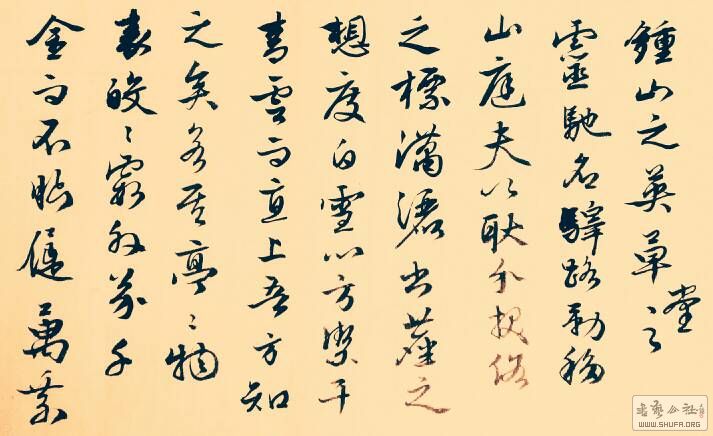 鍾山之英草堂之
靈馳名驛路勒移
山庭夫以耿介拔俗
之標瀟灑出塵之
想度白雪以方絜干
青雲而直上吾方知
之矣若其亭〻物
表皎〻霞外芥千
金而不眄屣萬乘
书艺公社
WWW.SHUFA.ORG